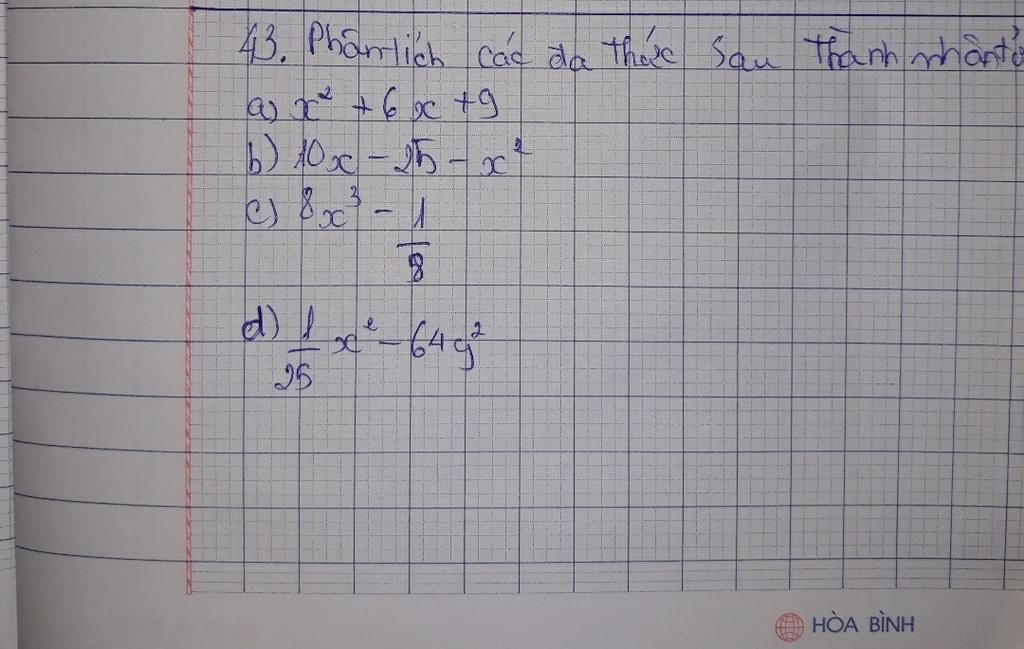 43. Phân tích các đa thức sau thành nhân tử
a) x² + 6x + 9
b) 10x - 25 - x²
c) 8x³ - 1/8
d) 1/25 x² - 64y²
HÒA BÌNH